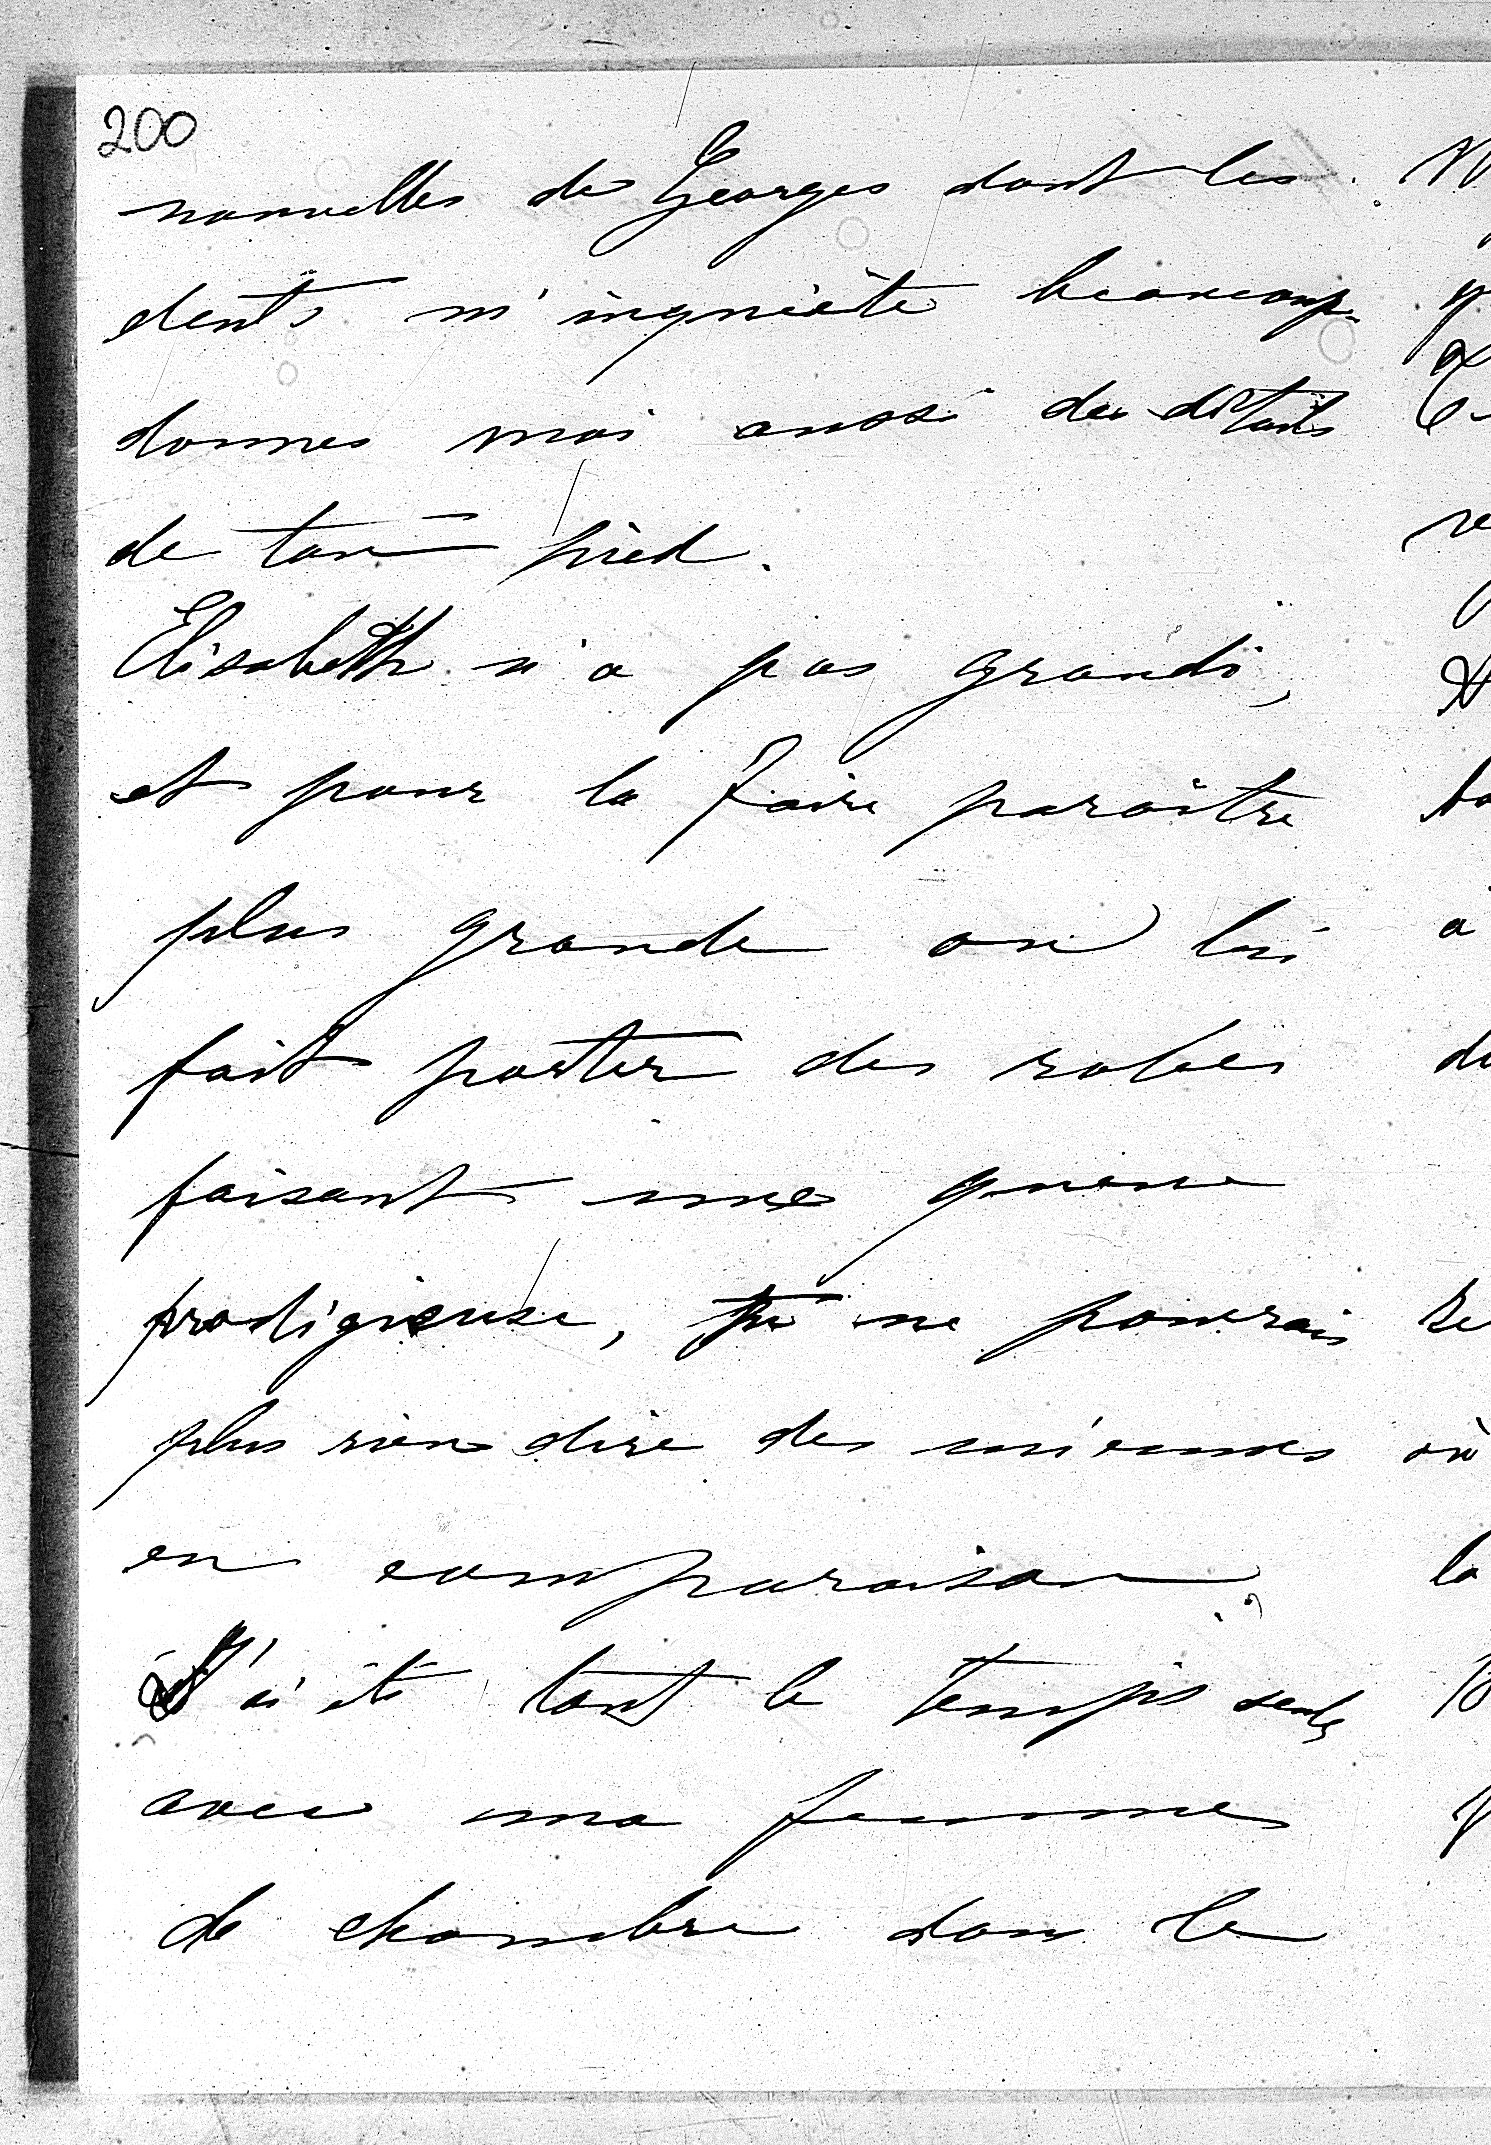 200
nouvelles de Georges dont les
dents m'inquiète beaucoup.
donnes moi aussi des détails
de ton pied.
Elisabeth n'a pas grandi,
et pour la faire paraître
plus grande on lui
fait porter des robes
faisant une queue
prodigieuse, tu ne pourrais
plus rien dire des miennes
en comparaison.
J'ai été tout le temps seule
avec ma femme
de chambre dans le